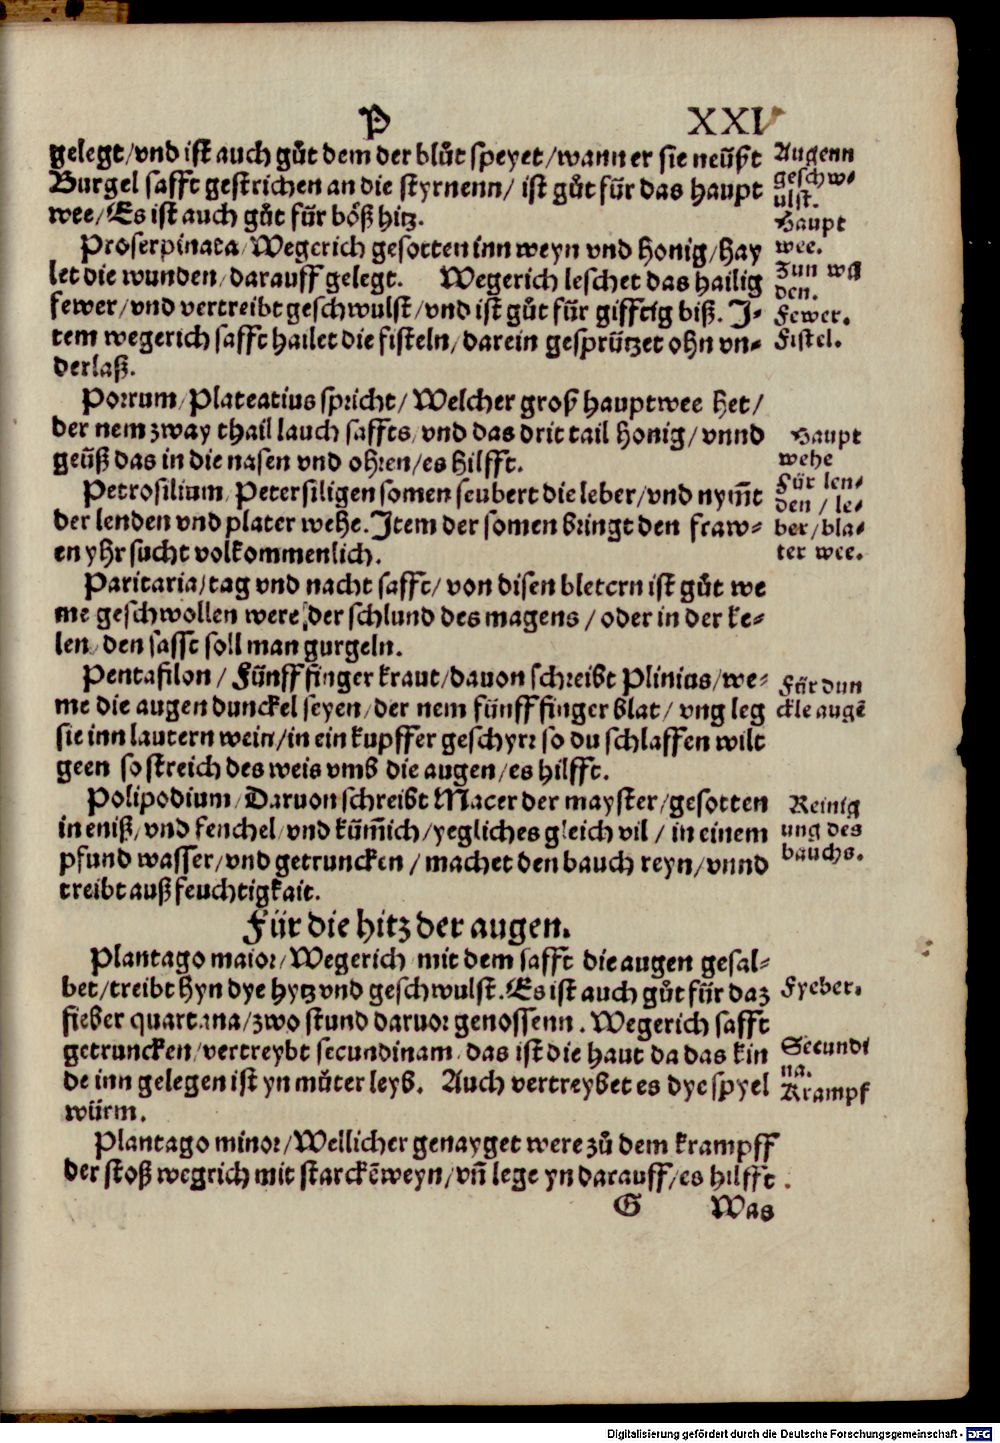 P XXV
gelegt/vnd ist auch gůt dem der blůt speyet/wann er sie neüßt
Burgel safft gestrichen an die styrnenn/ ist gůt für das haupt
wee/Es ist auch gůt für böß hitz.
Augenn
geschw-
ulst.
Haupt
wee.
Proserpinata/Wegerich gesotten inn weyn vnd honig/hay
let die wunden/darauff gelegt. Wegerich leschet das hailig
fewer/vnd vertreibt geschwulst/vnd ist gůt für gifftig biß. J-
tem wegerich safft hailet die fisteln/darein gesprützet ohn vn-
derlaß.
Zun wū
den.
Fewer.
Fistel.
Porrum/Plateatius spricht/Welcher groß hauptwee het/
der nem zway thail lauch saffts/vnd das drit tail honig/vnnd
geüß das in die nasen vnd ohren/es hilfft.
Haupt
wehe
Petrosilium/Petersiligen somen seubert die leber/vnd nym̄t
der lenden vnd plater wehe. Jtem der somen bringt den fraw-
en yhr sucht volkommenlich.
Für len-
den / le-
ber/bla-
ter wee.
Paritaria/tag vnd nacht safft/von disen bletern ist gůt we
me geschwollen were/der schlund des magens/oder in der ke-
len/den safft soll man gurgeln.
Pentafilon/Fünff finger kraut/dauon schreibt Plinius/we-
me die augen dunckel seyen/der nem fünff finger blat/vng leg
sie inn lautern wein/in ein kupffer geschyrr so du schlaffen wilt
geen so streich des weis vmb die augen/es hilfft.
Für dun
ckle augē
Polipodium/Daruon schreibt Macer der mayster/gesotten
in eniß/vnd fenchel/vnd küm̄ich/yegliches gleich vil/in einem
pfund wasser/vnd getruncken/machet den bauch reyn/vnnd
treibt auß feuchtigkait.
Reinig
ung des
bauchs.
Für die hitz der augen.
Plantago maior/Wegerich mit dem safft die augen gesal-
bet/treibt hyn dye hytz vnd geschwulst. Es ist auch gůt für daz
fieber quartana/zwo stund daruor genossenn. Wegerich safft
getruncken/vertreybt secundinam/das ist die haut da das kin
de inn gelegen ist yn můter leyb. Auch vertreybet es dye spyel
würm.
Fyeber.
Secundi
na.
Krampf
Plantago minor/Wellicher genayget were zů dem krampff
der stoß wegrich mit starckē weyn/vn̄ lege yn darauff/es hilfft.
G Was
Digitalisierung gefördert durch die Deutsche Forschungsgemeinschaft - DFG